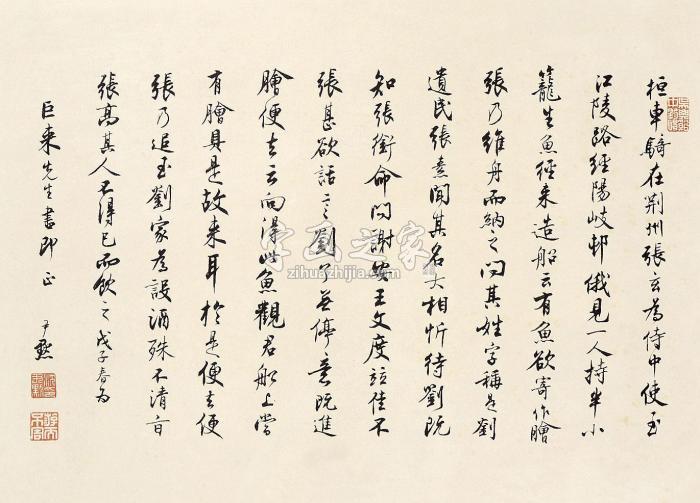 桓車騎在荊州張玄為侍中使至
江陵路經陽岐邨俄見一人持半小
籠生魚徑来造船云有魚欲寄作膾
張乃維舟而納之問其姓字稱是劉
遺民張素聞其名大相忻待劉既
知張銜命問謝安王文度竝佳不
張甚欲話言劉了無停意既進
膾便去云向得此魚觀君船上當
有膾具是故来耳於是便去便
張乃追至劉家為設酒殊不清旨
張高其人不得已而飲之戊子春為
巨来先生書即正
尹默
字画之家
zihuazhijia.com